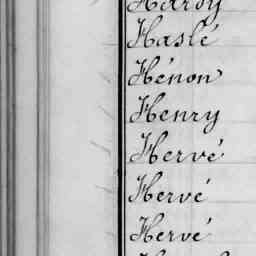 Hardy
Haslé
Hénon
Henry
Hervé
Hervé
Hervé